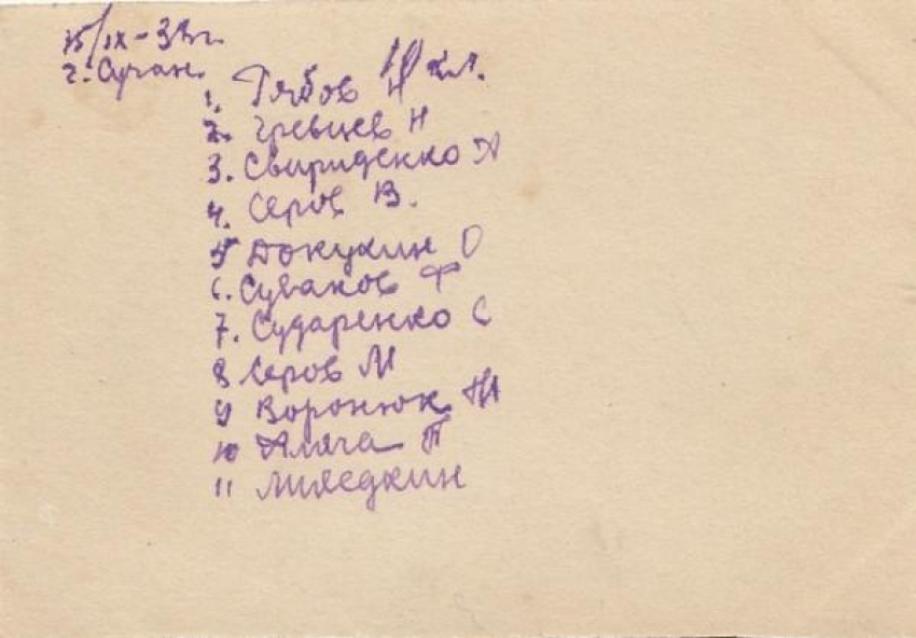 15/IX-39г.
г. Сучан.
1. Рябов Н кл.
2. Гревцев Н
3. Свириденко А
4. Серов В.
5 Докукин О
6. Суваков Ф
7. Сударенко С
8 Серов М
9 Воронюк
10 Аляга П
11